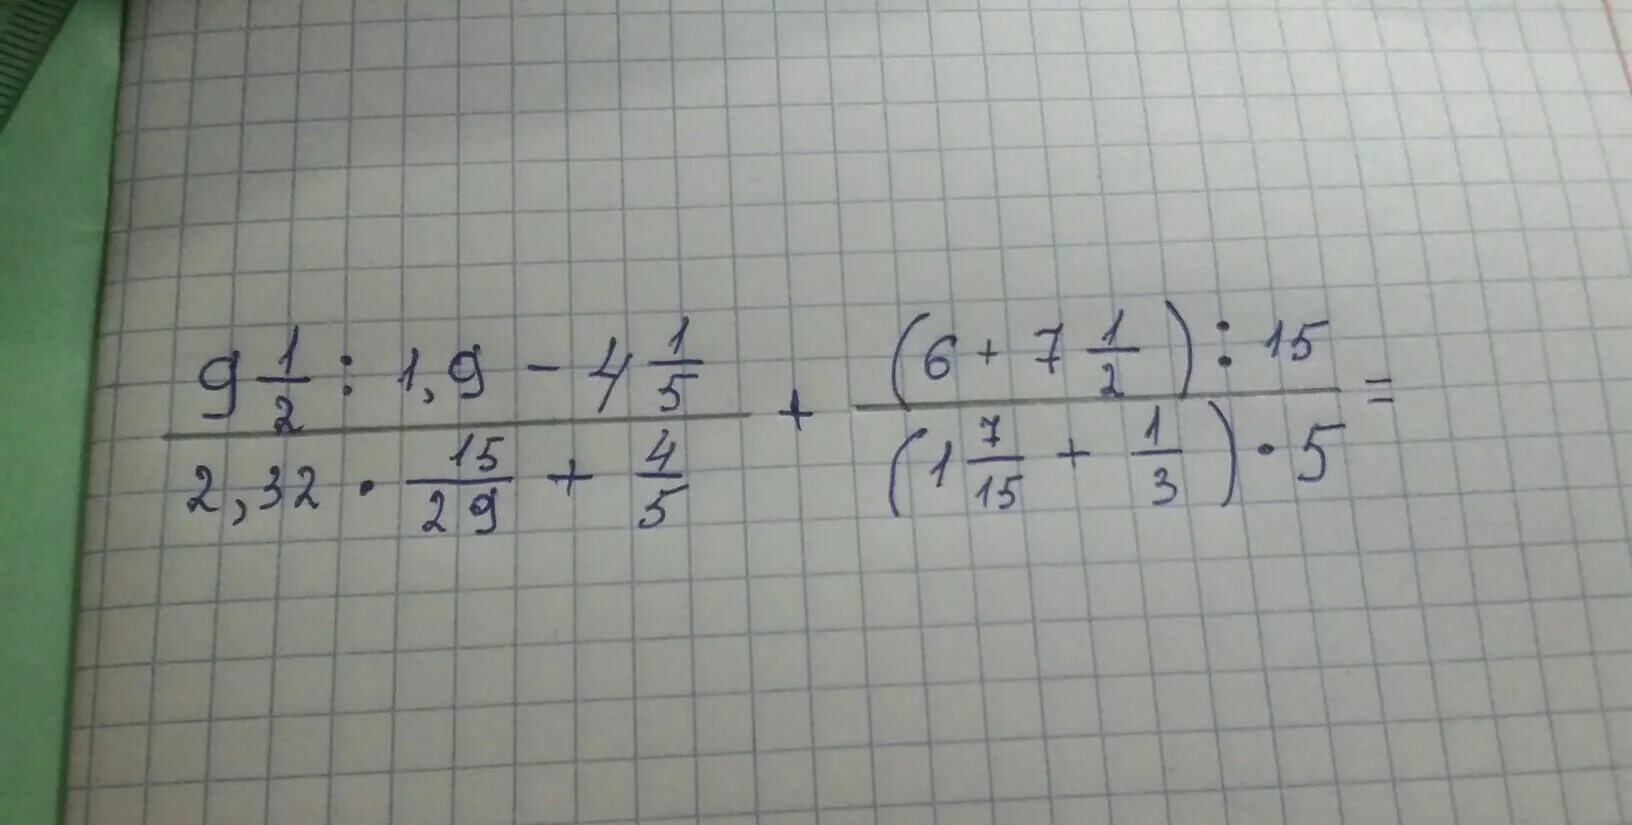 \frac{9\frac{1}{2} : 1,9 - 4\frac{1}{5}}{2,32 \cdot \frac{15}{29} + \frac{4}{5}} + \frac{(6 + 7\frac{1}{2}) : 15}{(1\frac{7}{15} + \frac{1}{3}) \cdot 5} =